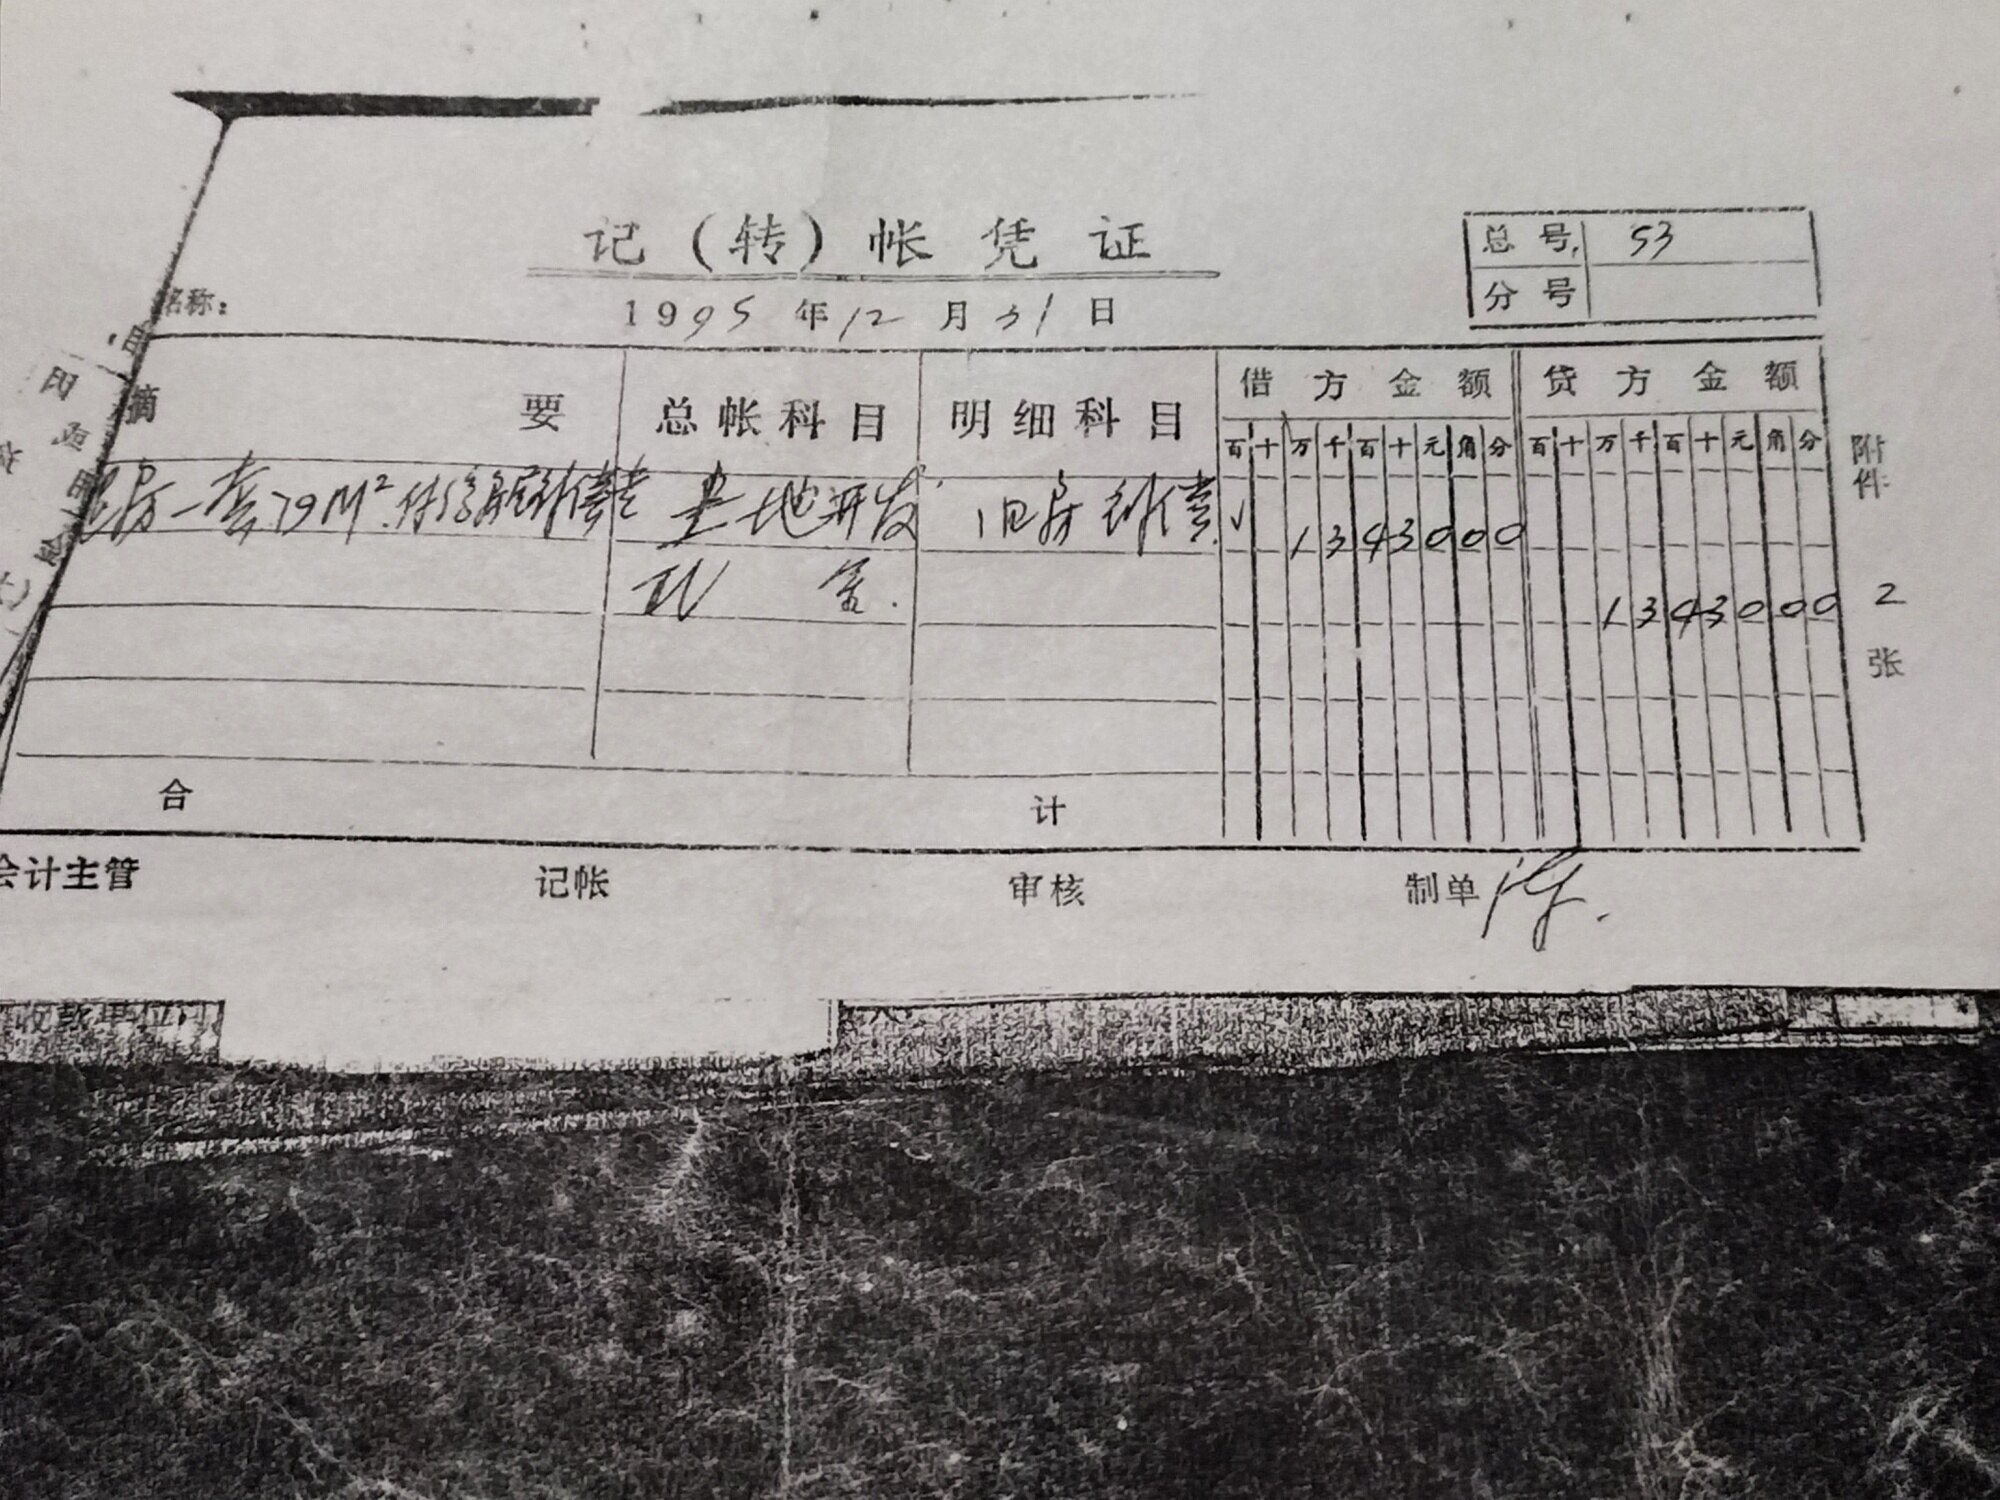 记（转）帐凭证
总号 53
分号
名称：
1995年12月31日
摘要 总帐科目 明细科目 借方金额 贷方金额
百十万千百十元角分 百十万千百十元角分
房一套79M² 土地开发 旧房补偿 √ 1343000
现金. 1343000
附件 2 张
合计
会计主管 记帐 审核 制单
收款单位